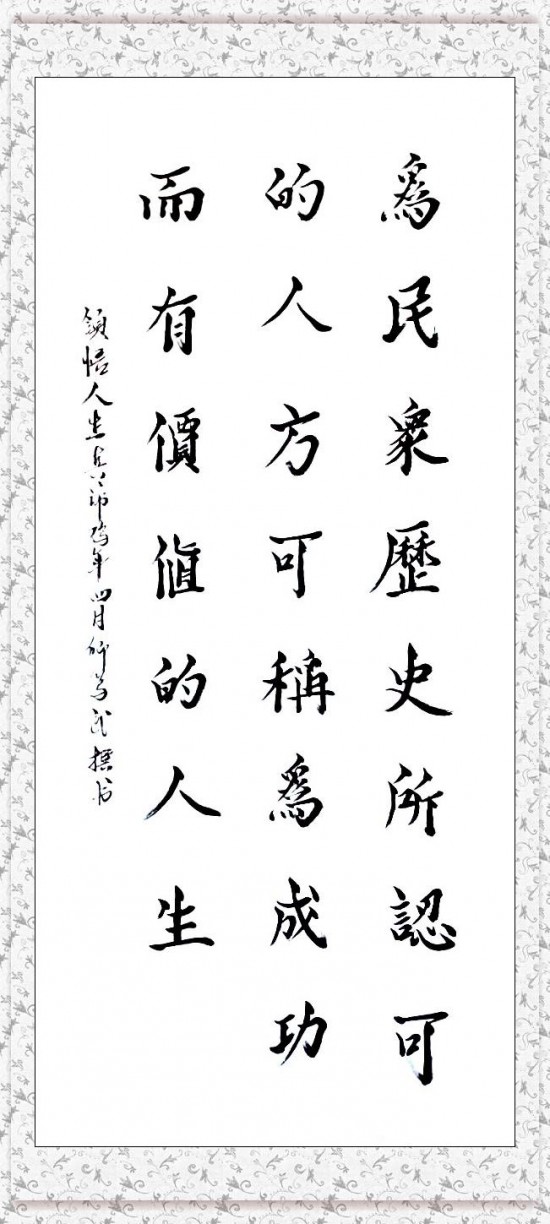 爲民衆歷史所認可
的人方可稱爲成功
而有價值的人生
領悟人生 年四月 撰书